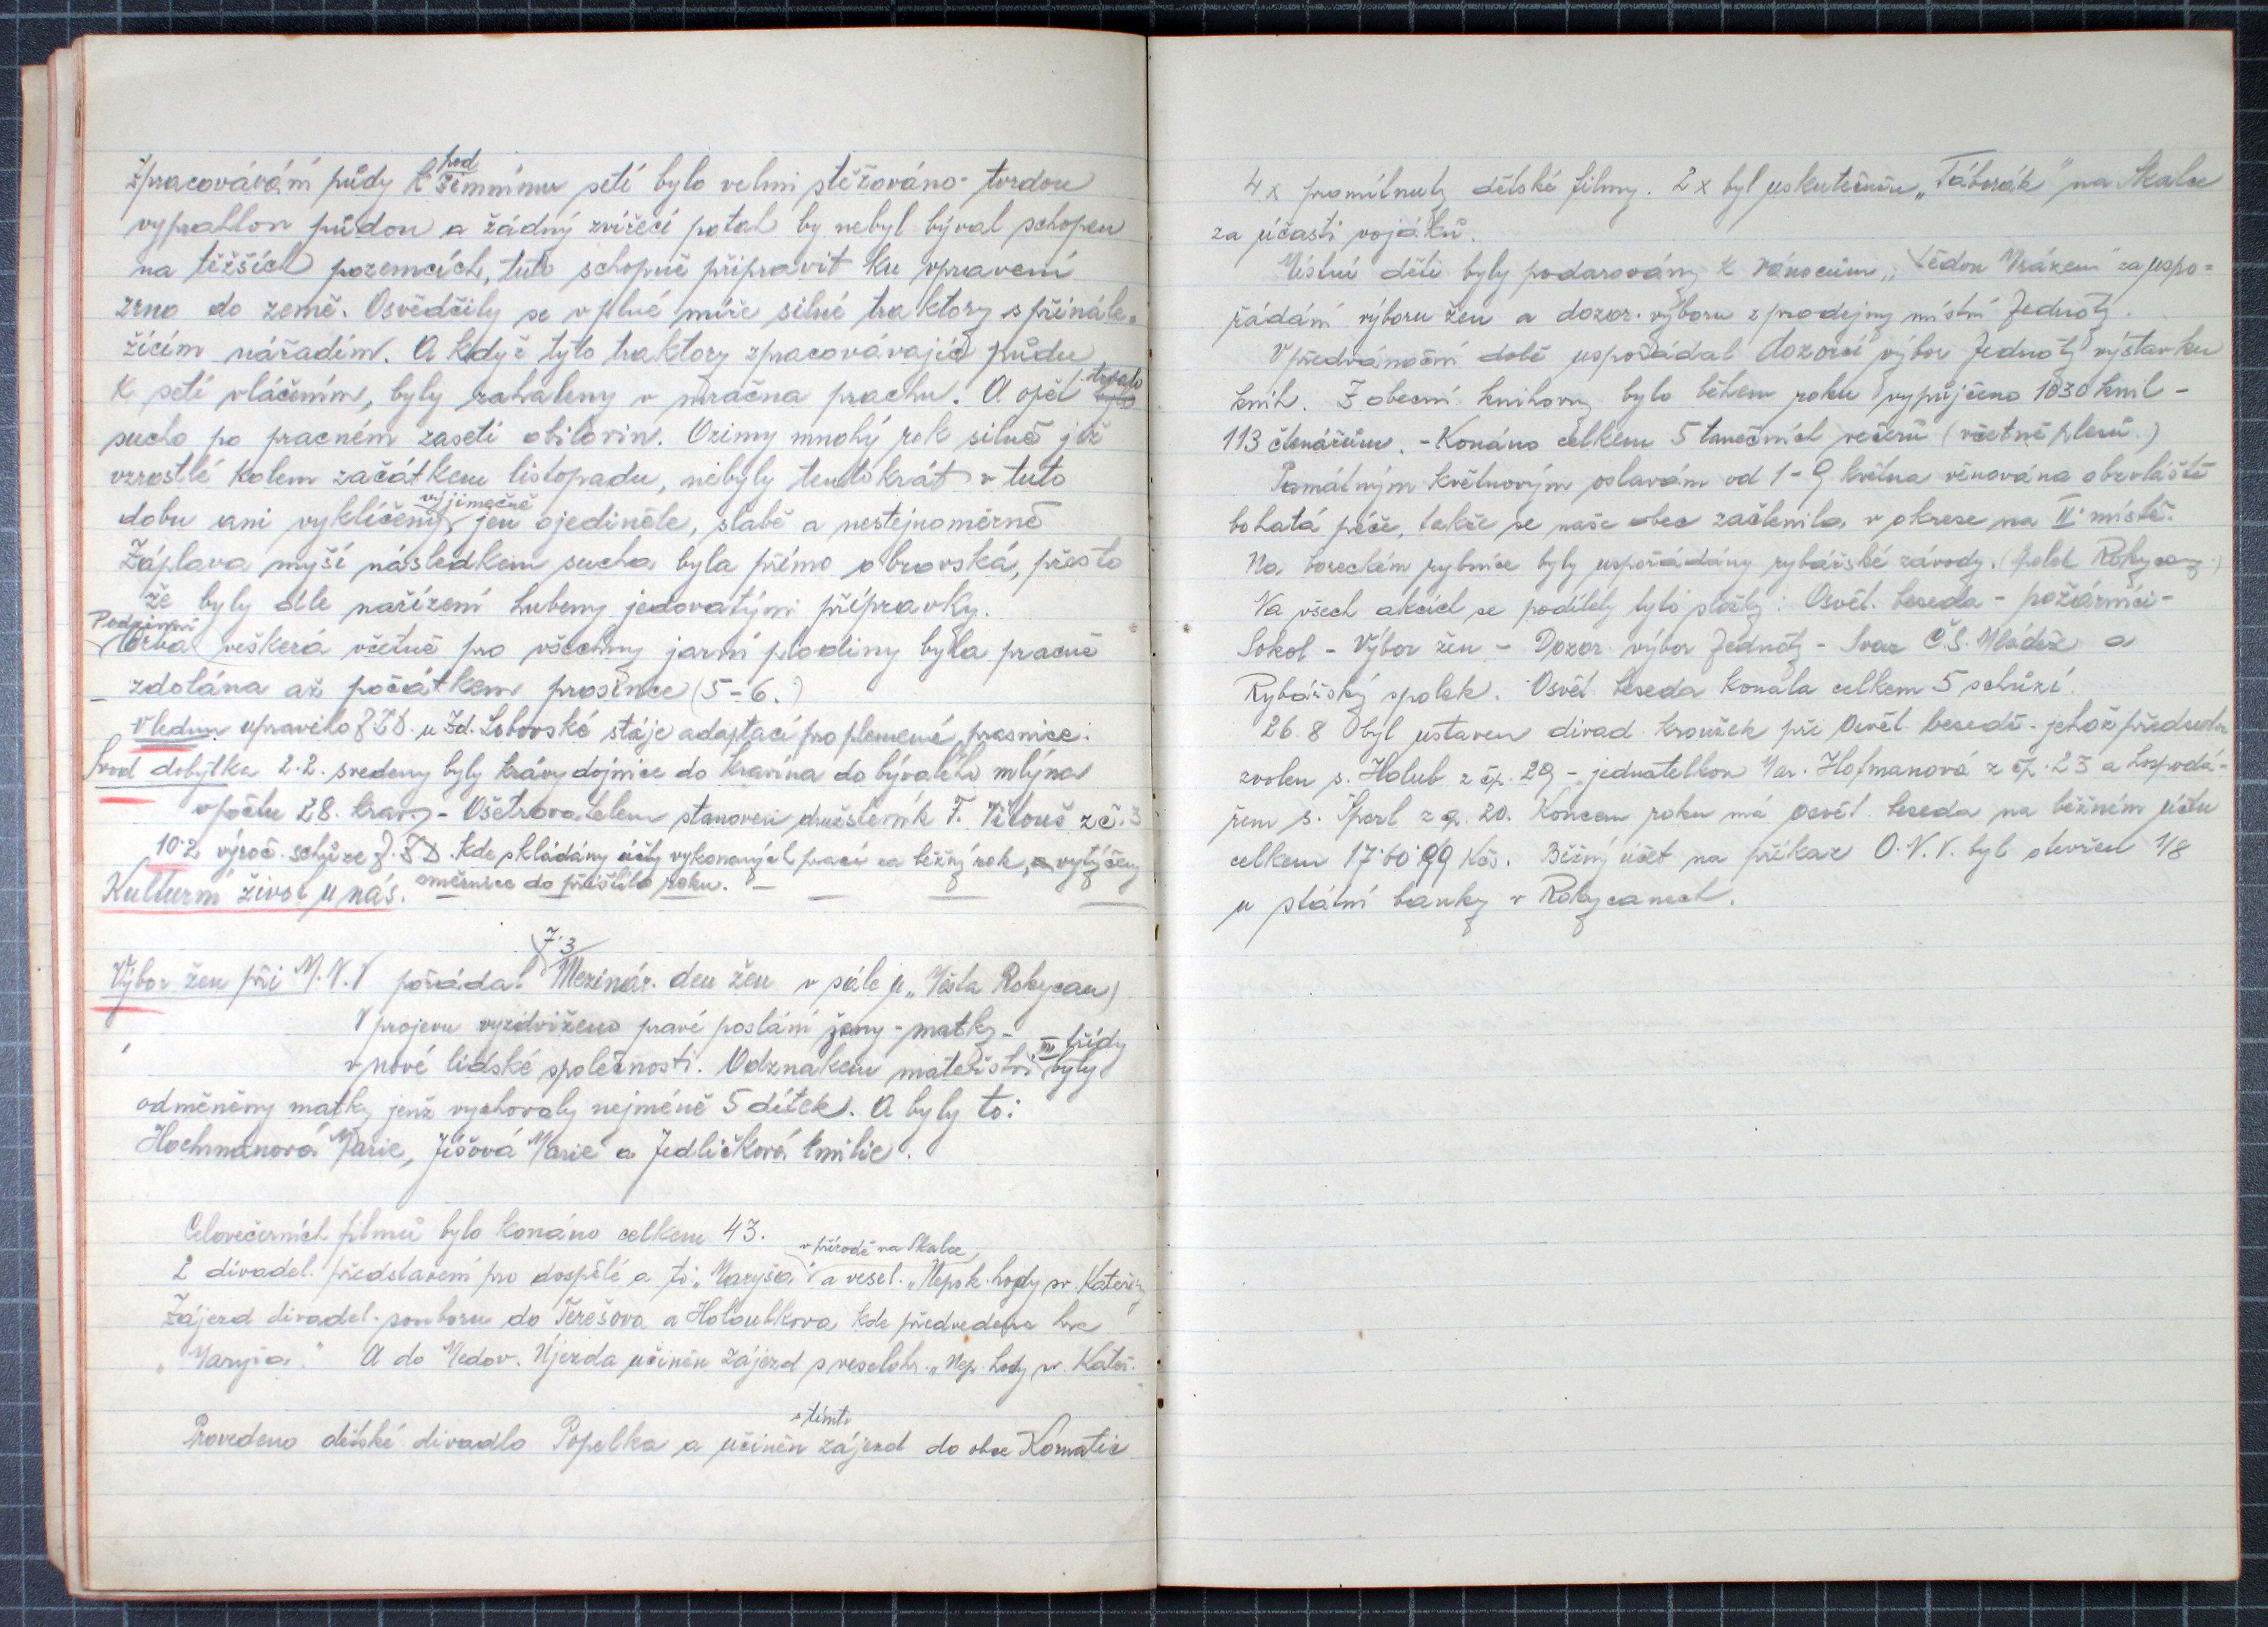 zpracovávání půdy k podzimnímu setí bylo velmi stěžováno - tvrdou
vyprahlou půdou a žádný zvířecí potah by nebyl býval schopen
na těžších pozemcích, tuto schopně připravit ku vpravení
zrno do země. Osvědčily se v plné míře silné traktory s přinále-
žícím nářadím. A když tyto traktory zpracovávajíc půdu
k setí vláčením, byly zahaleny v mračna prachu. A opět trvalo
sucho po pracném zasetí obilovin. Ozimy mnohý rok silně již
vzrostlé kolem začátkem listopadu, nebyly tentokrát v tuto
dobu ani vyklíčeny, výjimečně jen ojediněle, slabě a nestejnoměrně
Záplava myší následkem sucha byla přímo obrovská, přesto
že byly dle nařízení hubeny jedovatými přípravky.
Podzimní orba veškerá včetně pro všechny jarní plodiny byla pracně
zdolána až počátkem prosince (5-6.)
V lednu upravilo J.Z.D. u Zd. Lobovské stáje adaptací pro plemené prasnice.
Svod dobytka 2.2. svedeny byly krávy dojnice do kravína do bývalého mlýna
v počtu 28. krav. - Ošetřovatelem stanoven družstevník F. Vilouš z č. 3
10.2 výroč. schůze J.Z.D. kde skládány účty vykonaných prací za běžný rok, a vytýčeny
směrnice do příštího roku. -
Kulturní život u nás.
Výbor žen při M.N.V pořádal 7.3 Mezinár. den žen v sále u „Města Rokycan)
V projevu vyzdviženo pravé poslání ženy - matky -
v nové lidské společnosti. Odznakem mateřství III třídy byly
odměněny matky jenž vychovaly nejméně 5 dítek. A byly to:
Hochmanová Marie, Jíšová Marie a Jedličková Emilie.
Celovečerních filmů bylo konáno celkem 43.
2 divadel. představení pro dospělé a to „Maryša" v přírodě na Skalce, a vesel. „Nepok. hody sv. Kateřiny
Zájezd divadel. souboru do Terešova a Holoubkova kde předvedena hra
„Maryša." A do Medov. Újezda učiněn zájezd s veselohr. „Nep. hody sv. Kateř."
Provedeno dětské divadlo Popelka a učiněn s tímto zájezd do obce Kornatic
4 x promítnuty dětské filmy. 2 x byl uskutečněn „Táborák" na Skalce
za účasti vojáků.
Místní děti byly podarovány k vánocům „Dědou Mrázem za uspo-
řádání výboru žen a dozor. výboru z prodejny místní Jednoty.
V předvánoční době uspořádal dozorčí výbor Jednoty výstavku
knih. Z obecní knihovny bylo během roku vypůjčeno 1030 knih -
113 čtenářům. - Konáno celkem 5 tanečních večerů (včetně plesů.)
Památným květnovým oslavám od 1 - 9 května věnována obzvláště
bohatá péče, takže se naše obec začlenila v okrese na II. místě.
Na boreckém rybníce byly uspořádány rybářské závody. (polol Rokycany.)
Na všech akcích se podílely tyto složky: Osvět. beseda - požárníci -
Sokol - Výbor žen - Dozor. výbor Jednoty - Svaz Č.S. Mládeže a
Rybářský spolek. Osvět. beseda konala celkem 5 schůzí.
26 8 byl ustaven divad. kroužek při Osvět. besedě - jehož předsedou
zvolen s. Holub z čp. 29 - jednatelkou Mar. Hofmanová z čp. 23 a hospodá-
řem s. Šperl z čp. 20. Koncem roku má osvět. beseda na běžném účtu
celkem 17.60.99 Kčs. Běžný účet na příkaz O.N.V. byl otevřen 1/8
u státní banky v Rokycanech.